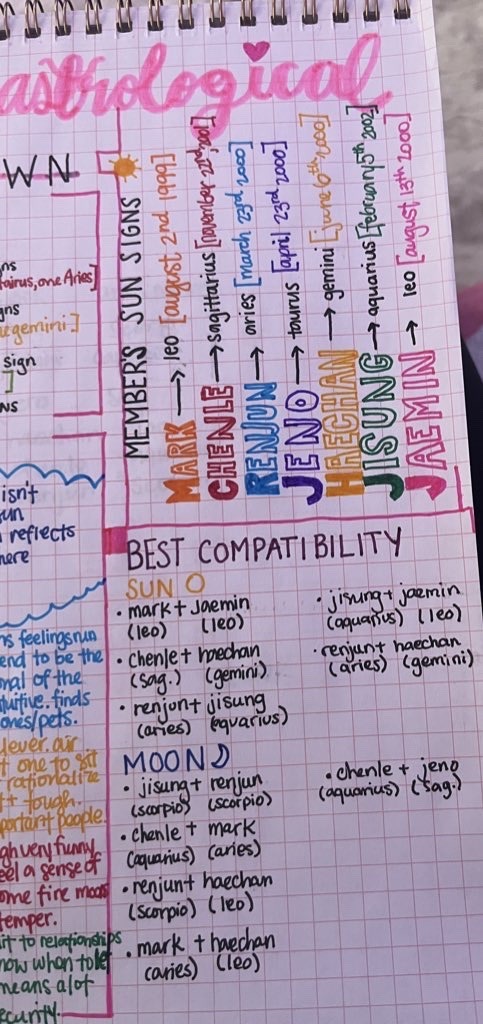 astrological
WN
ns
taurus, one Aries]
gns
gemini]
sign
]
ns
isn't
sun
reflects
here
feelings run
end to be the
of the
finds
ones/pets.
clever. air
one to sit
rationalize
tough.
people.
very funny,
feel a sense of
some fire moon
temper.
it to relationships
know when to let
means a lot
security.
MEMBERS SUN SIGNS
MARK → leo [august 2nd 1999]
CHENLE → sagittarius [november 22nd, 2001]
RENJUN → aries [march 23rd 2000]
JENO → taurus [april 23rd 2000]
HAECHAN → gemini [june 6th 2000]
JISUNG → aquarius [february 5th 2002]
JAEMIN → leo [august 13th 2000]
BEST COMPATIBILITY
SUN
• mark + Jaemin
(leo) (leo)
• chenle + haechan
(sag.) (gemini)
• renjun + jisung
(aries) (aquarius)
• jisung + jaemin
(aquarius) (leo)
• renjun + haechan
(aries) (gemini)
MOON
• jisung + renjun
(scorpio) (scorpio)
• chenle + mark
(aquarius) (aries)
• renjun + haechan
(scorpio) (leo)
• mark + haechan
(aries) (leo)
• chenle + jeno
(aquarius) (sag.)